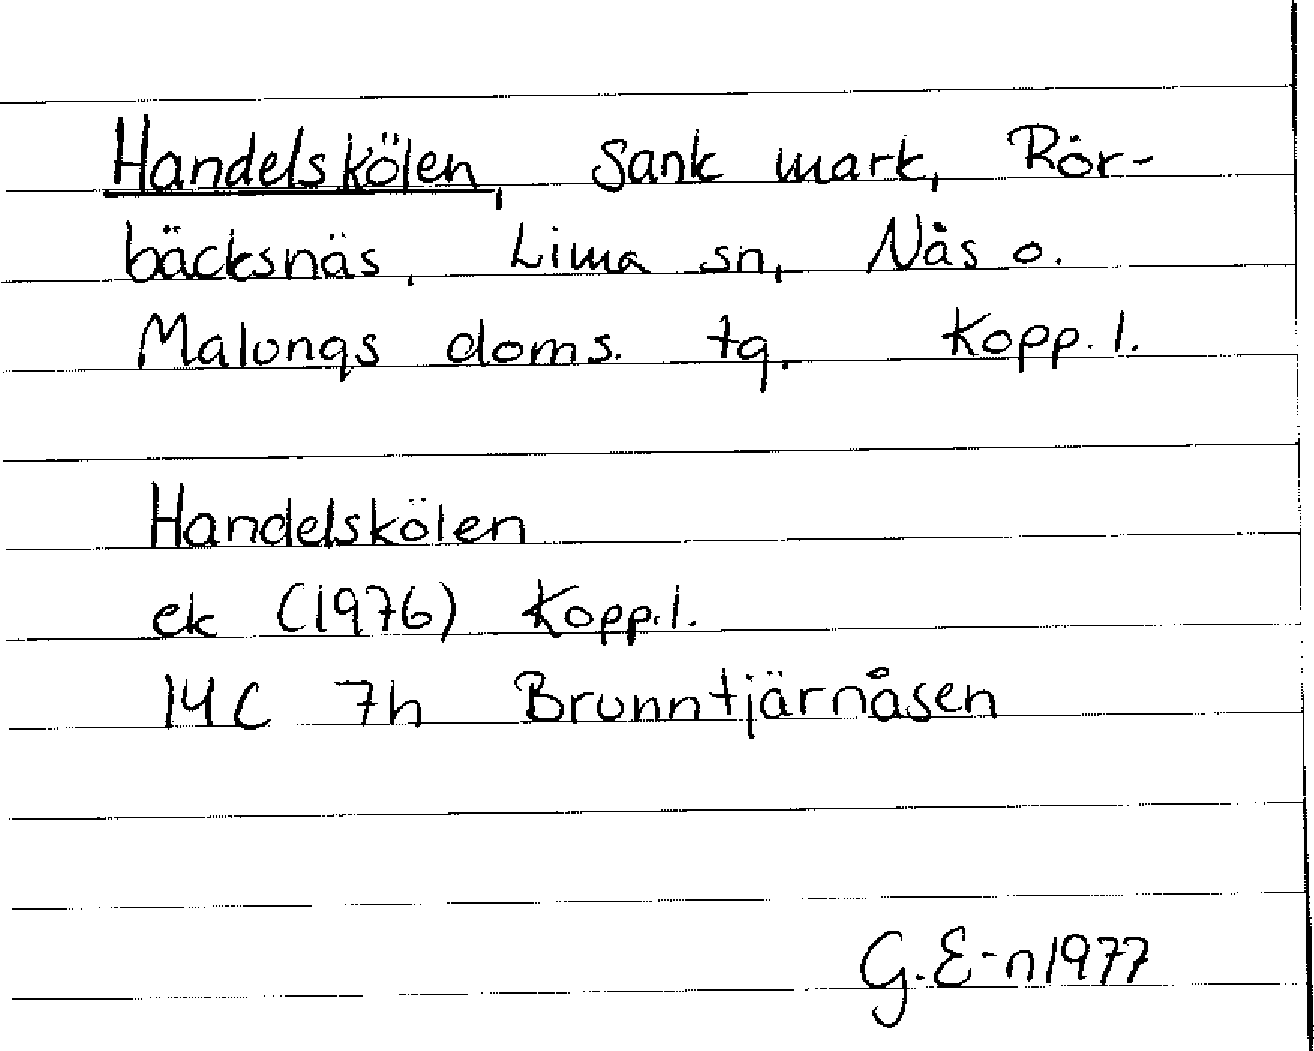 Handelskölen, Sank mark, Rör-
bäcksnäs, Lima sn, Nås o.
Malungs doms. tg. Kopp. l.
Handelskölen
ek (1976) Kopp.l.
14C 7h Brunntjärnåsen
G. E-n 1977